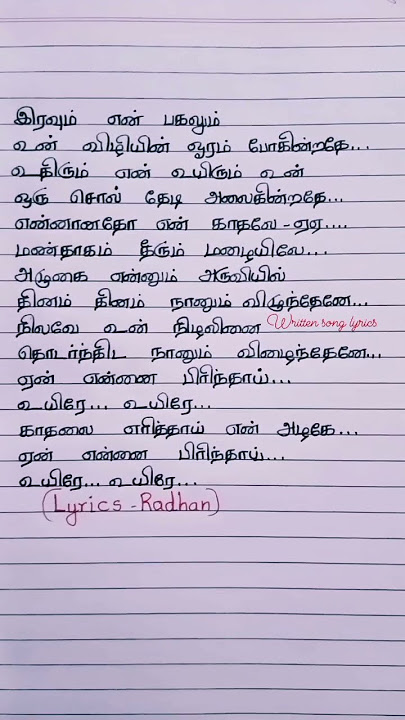 இரவும் என் பகலும்
உன் விழியின் ஓரம் போகின்றதே...
உதிரும் என் உயிரும் உன்
ஒரு சொல் தேடி அலைகின்றதே...
என்னானதோ என் காதலே - ஏஏ....
மண்தாகம் தீரும் மழையிலே...
அழுகை என்னும் அருவியில்
தினம் தினம் நானும் விழுந்தேனே...
நிலவே உன் நிழலினை Written song lyrics
தொடர்ந்திட நானும் விழைந்தேனே...
ஏன் என்னை பிரிந்தாய்...
உயிரே... உயிரே...
காதலை எரித்தாய் என் அழகே...
ஏன் என்னை பிரிந்தாய்...
உயிரே... உயிரே...
(Lyrics - Radhan)